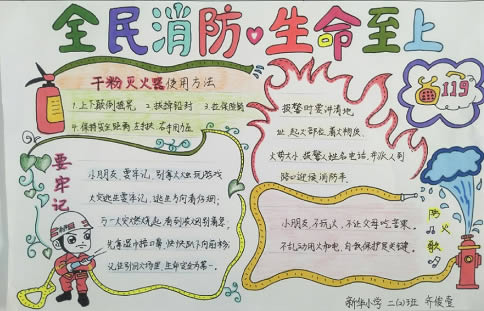 全民消防·生命至上
干粉灭火器使用方法
1.上下颠倒摇晃 2.拔掉铅封 3.拉保险销
4.保持安全距离 左手扶 右手用力压
报警时要讲清地
址 起火部位 着火物质
火势大小 报警人姓名电话 并派人到
路口迎候消防车
119
要牢记
小朋友 要牢记 别拿火烛玩游戏
大火逃生要牢记 逃生方向看仔细
万一大火燃烧起 看到浓烟别着急
快快趴下向后移
生命安全为第一
防火歌
小朋友 不玩火 不让父母吃苦果
不乱动用火和电 自我保护是关键
新华小学 二(2)班 齐俊莹